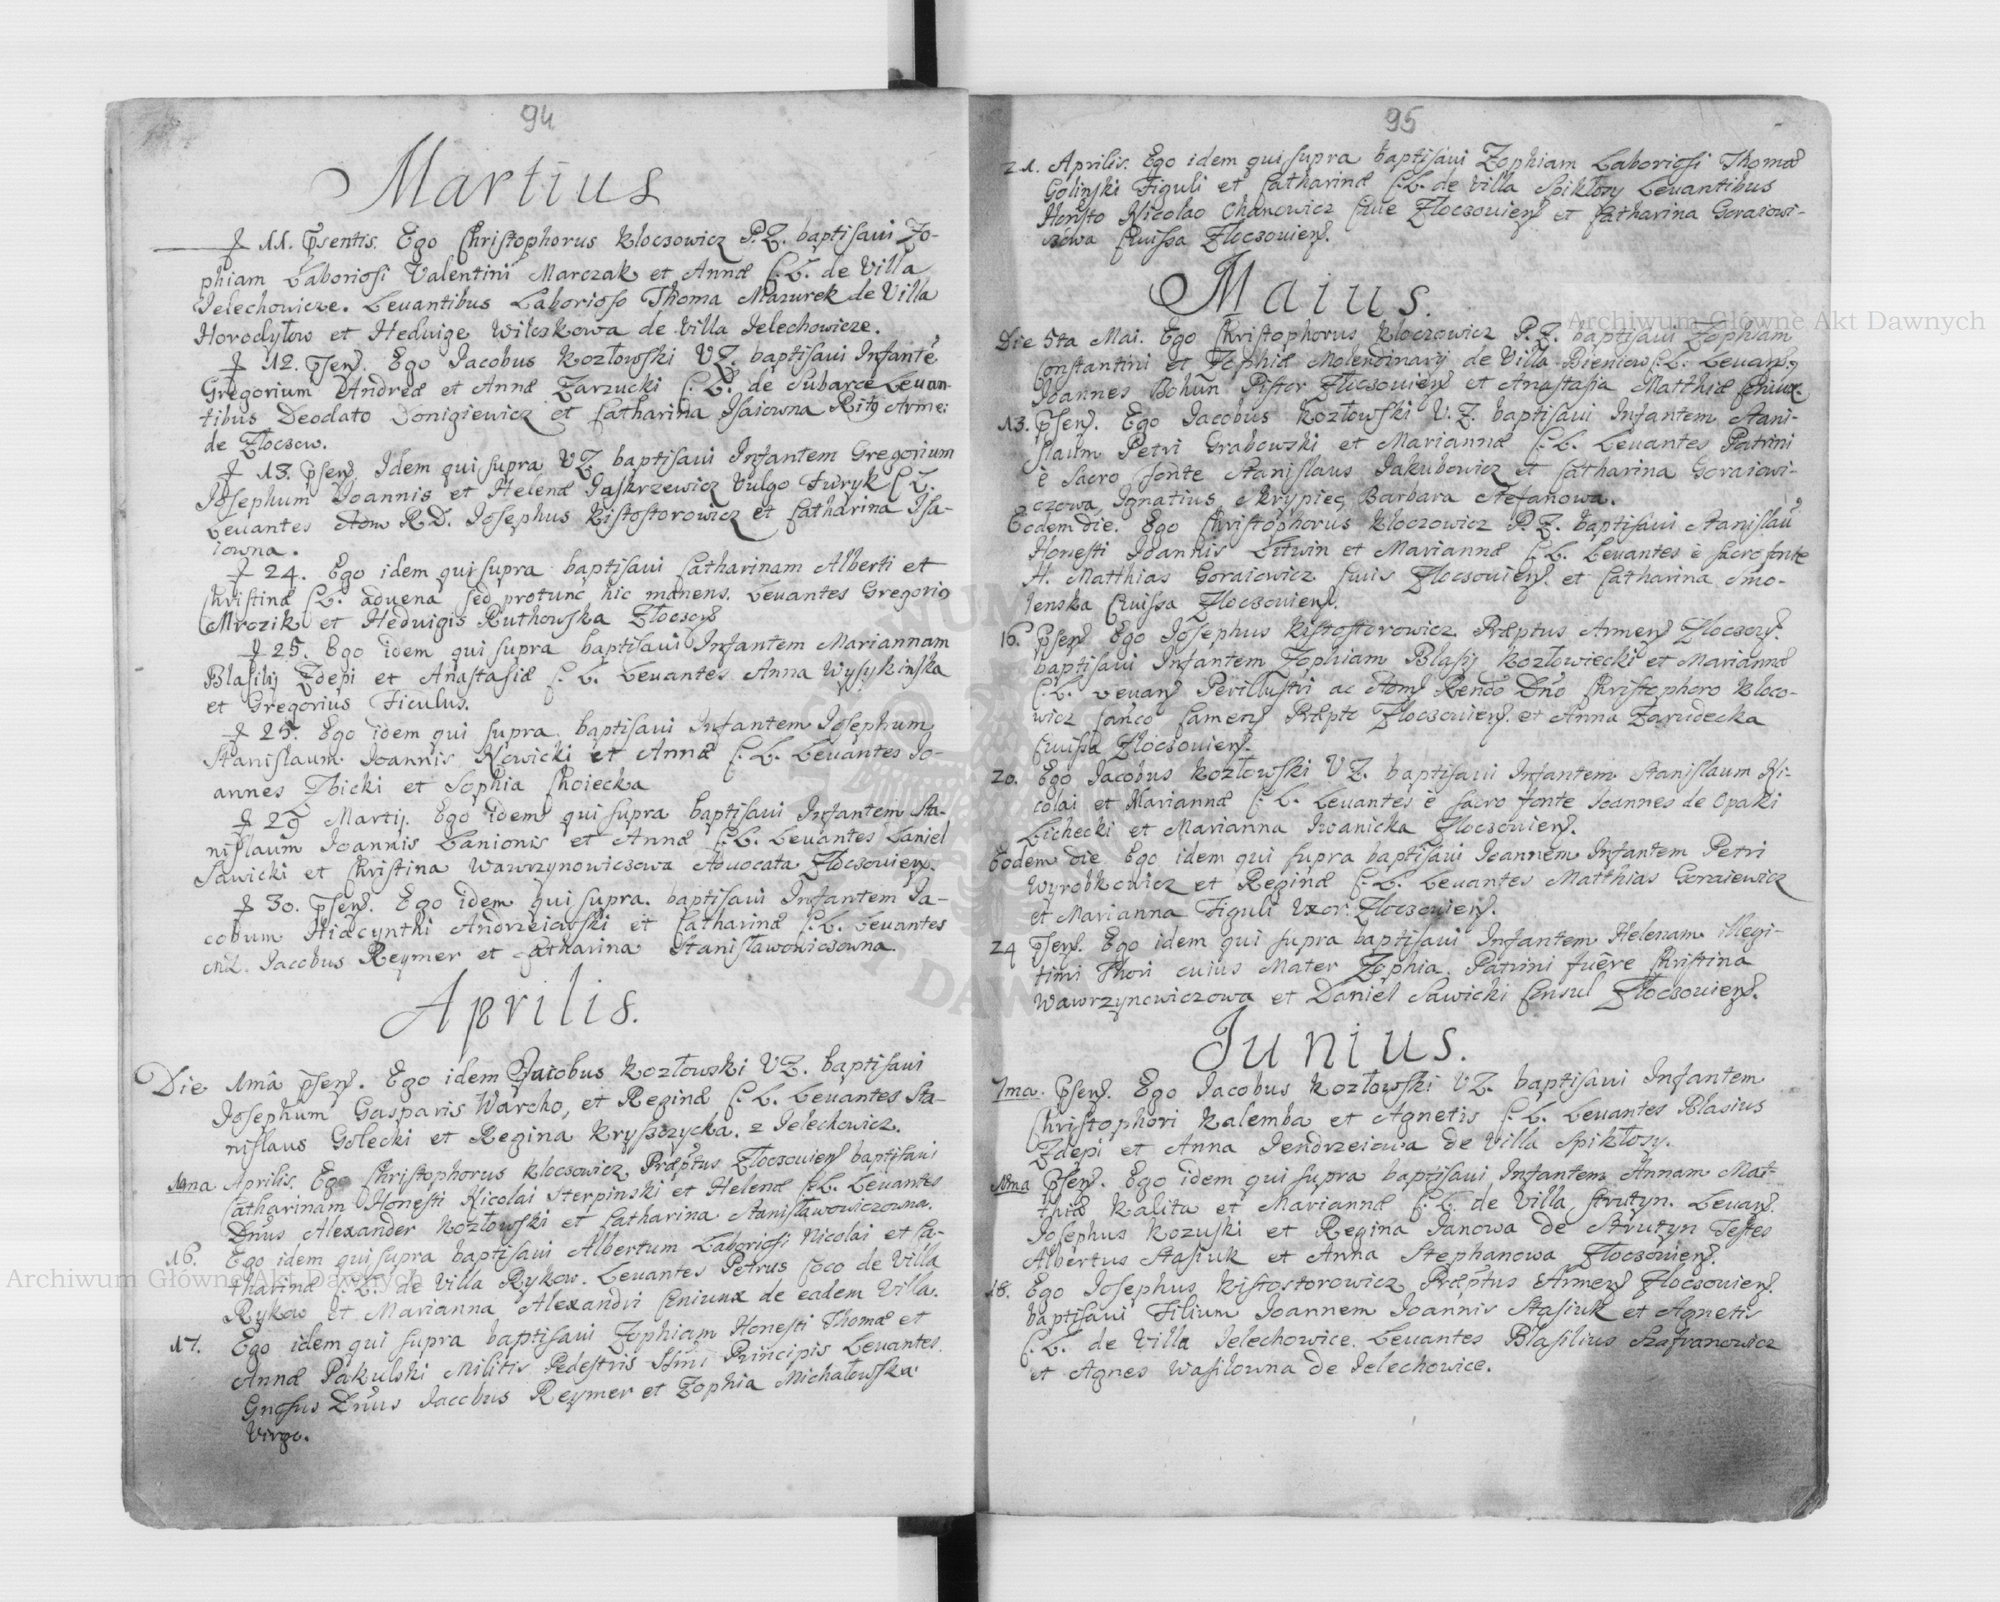 94
Martius
⨍ 11. p̄sentis. Ego Christophorus Kloczowicz P.Z. baptisavi Zo-
phiam Laboriosi Valentini Marczak et Annæ C.L. de Villa
Jelechowicze. Levantibus Laborioso Thoma Mazurek de Villa
Horodyłow et Hedvige Wilczkowa de Villa Jelechowicze.
⨍ 12. p̄sen. Ego Jacobus Kozłowski VZ. baptisavi Infantē
Gregorium Andreæ et Annæ Zarzucki C.L. de Subarce Levan-
tibus Deodato Donigiewicz et Catharina Isaiowna Rit9 Arme:
de Złoczow.
⨍ 13. p̄sen. Idem qui supra VZ baptisavi Infantem Gregorium
Josephum Joannis et Helenæ Jaskrzewicz Vulgo Furyk C.L.
Levantes Adm R.D. Josephus Kistostorowicz et Catharina Isa-
iowna.
⨍ 24. Ego idem qui supra baptisavi Catharinam Alberti et
Christinæ C.L. advena sed protunc hic manens. Levantes Gregori9
Mrozik et Hedvigis Ruthowska Złoczov
⨍ 25. Ego idem qui supra baptisavi Infantem Mariannam
Blasilij Zdepi et Anastasiæ C.L. Levantes Anna Wysykinska
et Gregorius Ficulus.
⨍ 25. Ego idem qui supra baptisavi Infantem Josephum
Stanislaum Joannis Nowicki et Annæ C.L. Levantes Jo-
annes Zbicki et Sophia Choiecka
⨍ 29 Martij. Ego idem qui supra baptisavi Infantem Sta-
nislaum Joannis Lanionis et Annæ C.L. Levantes Daniel
Sawicki et Christina Wawrzynowiczowa Advocata Złoczovien.
⨍ 30. p̄sen. Ego idem qui supra. baptisavi Infantem Ja-
cobum Hiacynthi Andrzeiowski et Catharinæ C.L. Levantes
Jacobus Reymer et Catharina Stanisławowiczowna
Aprilis.
Die 1mā p̄sen. Ego idem Jacobus Kozłowski VZ. baptisavi
Josephum Gasparis Warcho, et Reginæ C.L. Levantes Sta-
nislaus Gołecki et Regina Kryszczycka. z Jelechowicz.
Aprilis. Ego Christophorus Kloczowicz Præptus Złoczovien baptisavi
Catharinam Honesti Nicolai Sterpinski et Helenæ C.L. Levantes
Dnus Alexander Kozłowski et Catharina Stanisławowiczowna.
16. Ego idem qui supra baptisavi Albertum Laboriosi Nicolai et Ca-
tharinæ C.L. de Villa Rykow. Levantes Petrus Coco de Villa
Rykow et Marianna Alexandri Coniunx de eadem Villa.
17. Ego idem qui supra baptisavi Zophiam Honesti Thomæ et
Annæ Pakulski Militis Pedestris Principis Levantes.
Gnosus Dnus Jacobus Reymer et Zophia Michałowska
Virgo.
95
21. Aprilis. Ego idem qui supra baptisavi Zophiam Laboriosi Thomæ
Golinski Figuli et Catharinæ C.L. de Villa Spikłosy Levantibus
Honsto Nicolao Ohanowicz Cive Złoczovien et Catharina Goraiowi-
czowa Civissa Złoczovien.
Maius.
Die 5ta Mai. Ego Christophorus Kloczowicz P.Z. baptisavi Zophiam
Constantini et Zophiæ Molendinarij de Villa Bieniow C.L. Levan.
Joannes Bohun Pistor Złoczovien et Anastasia Matthiæ Coniux.
13. p̄sen. Ego Jacobus Kozłowski V.Z. baptisavi Infantem Stani-
slaum Petri Grabowski et Mariannæ C.L. Levantes Patrini
è Sacro fonte Stanislaus Jakubowicz et Catharina Goraiowi-
czowa, Ignatius Skrypiec, Barbara Stefanowa.
Eodem die. Ego Christophorus Kloczowicz P.Z. baptisavi Stanislaū
Honesti Joannis Litwin et Mariannæ C.L. Levantes è sacro fonte
H. Matthias Goraiowicz Civis Złoczovien. et Catharina Smo-
lenska Civissa Złoczovien.
16. p̄sen. Ego Josephus Kistostorowicz Præptus Armen Złoczov.
baptisavi Infantem Zophiam Blasij Kozłowiecki et Mariannæ
C.L. Levan Perillustri ac Adm Rendo Dno Christophoro Kloco-
wicz Canco Camen Præpto Złoczovien. et Anna Zarudecka
Civissa Złoczovien.
20. Ego Jacobus Kozłowski VZ. baptisavi Infantem Stanislaum Ni-
colai et Mariannæ C.L. Levantes è sacro fonte Joannes de Opaki
Lichecki et Marianna Iwanicka Złoczovien.
Eodem die Ego idem qui supra baptisavi Joannem Infantem Petri
Wyrobkowicz et Reginæ C.L. Levantes Matthias Goraiewicz
et Marianna Figuli Uxor Złoczovien.
24 p̄sen. Ego idem qui supra baptisavi Infantem Helenam illegi-
timi Thori cuius Mater Zophia. Patrini fuēre Christina
Wawrzynowiczowa et Daniel Sawicki Consul Złoczovien.
Junius.
7ma. p̄sen. Ego Jacobus Kozłowski VZ. baptisavi Infantem
Christophori Kalemba et Agnetis C.L. Levantes Blasius
Zdepi et Anna Jendrzeiowa de Villa Spikłosy.
p̄sen. Ego idem qui supra baptisavi Infantem Annam Mat-
thiæ Kalita et Mariannæ C.L. de Villa Strutyn. Levan.
Josephus Kozuski et Regina Janowa de Strutyn Testes
Albertus Stasiuk et Anna Stephanowa Złoczovien.
18. Ego Josephus Kistostorowicz Præptus Armen Złoczovien.
baptisavi Filium Joannem Joannis Stasiuk et Agnetis
C.L. de Villa Jelechowice. Levantes Blasilius Szafranowicz
et Agnes Wasilowna de Jelechowice.
Archiwum Główne Akt Dawnych
Archiwum Główne Akt Dawnych